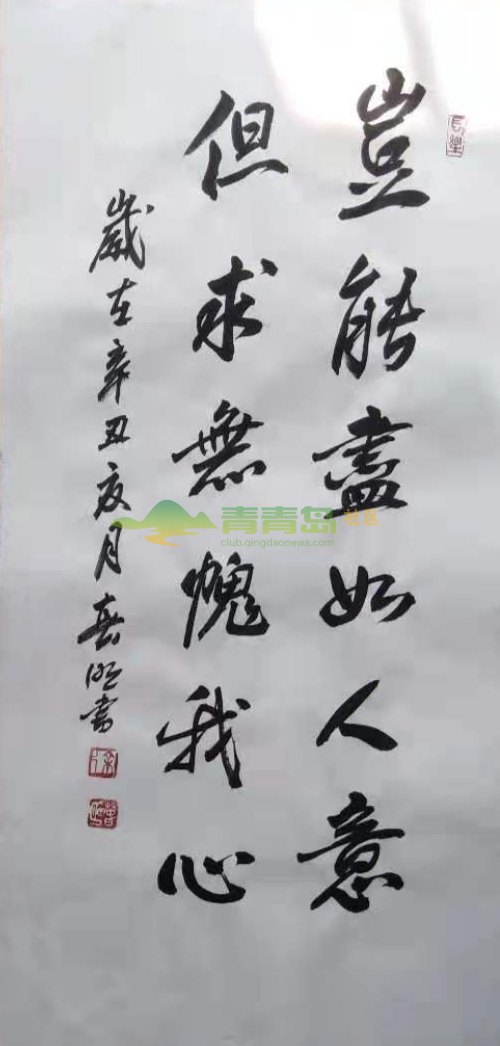 豈能盡如人意
但求無愧我心
歲在辛丑亥月春明書
青青岛社区
club.qingdaonews.com